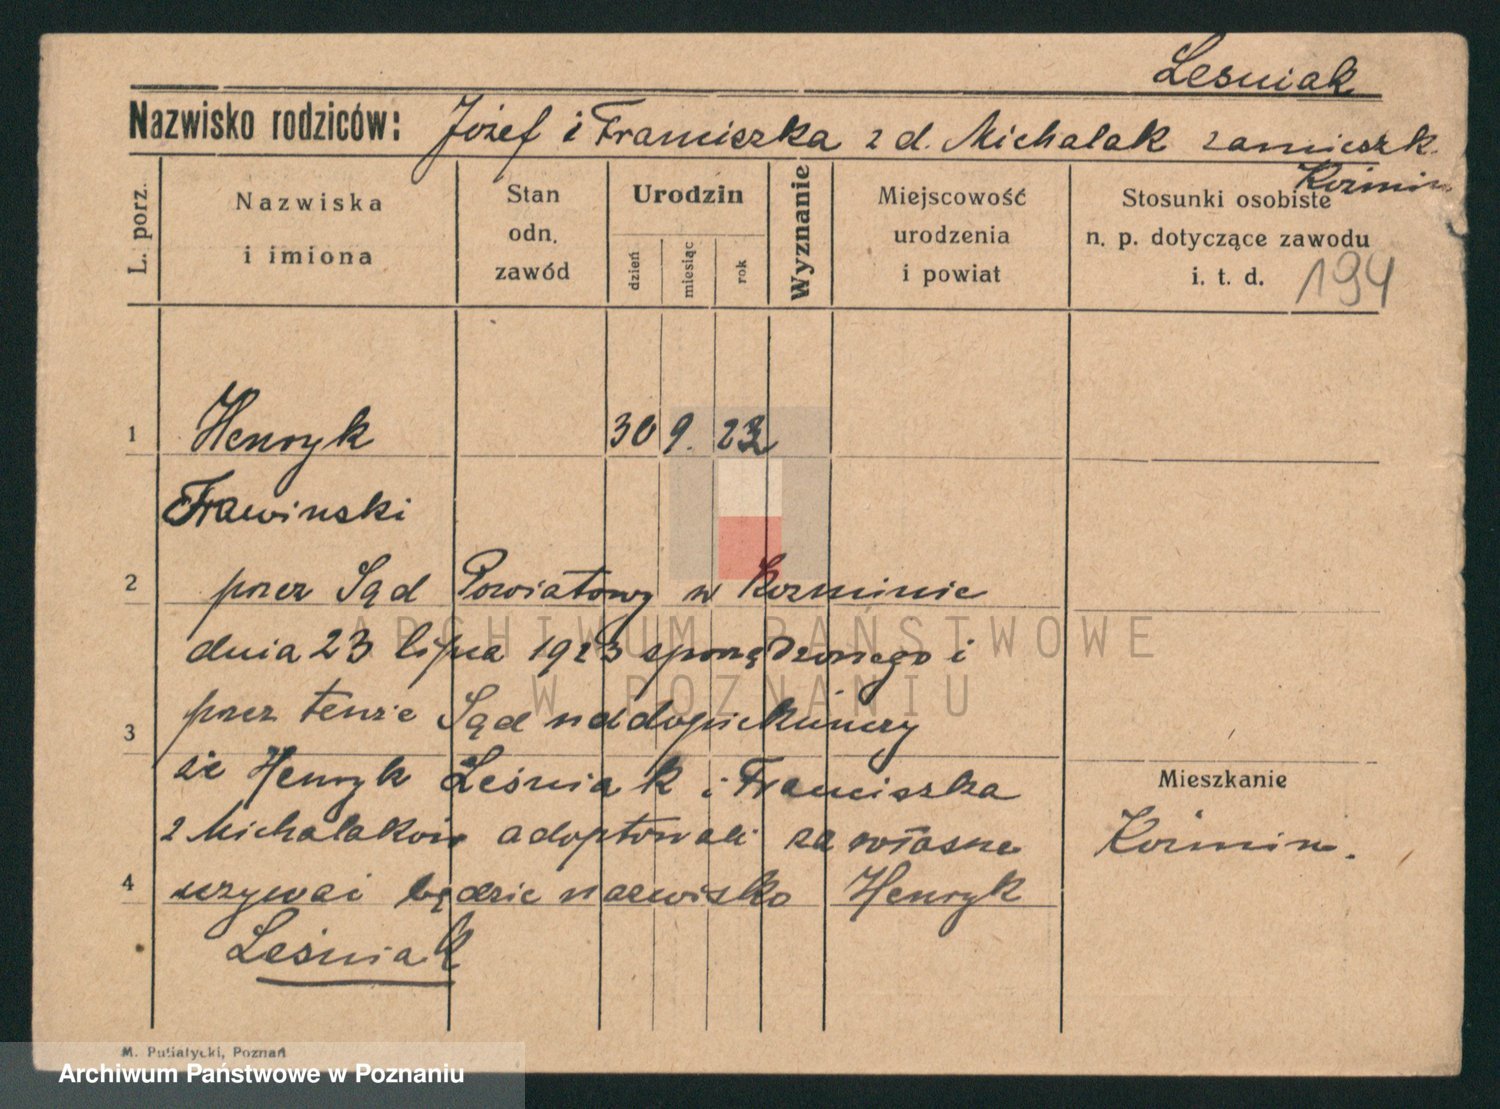 Lesniak
Nazwisko rodziców: Józef i Franciszka z d. Michalak zamieszk.
Koźmin
L. porz.
Nazwiska
i imiona
Stan
odn.
zawód
Urodzin
dzień
miesiąc
rok
Wyznanie
Miejscowość
urodzenia
i powiat
Stosunki osobiste
n. p. dotyczące zawodu
i. t. d. 194
1 Henryk 30 9. 22
Frawinski
2 przez Sąd Powiatowy w Kozminie
dnia 23 lipca 1923 sporządzonego i
3 przez tenże Sąd naddopiekuńczy
że Henryk Leśniak i Franciszka
z Michalaków adoptowali za własne
4 używać będzie nazwisko Henryk
Leśniak
Mieszkanie
Koźmin.
M. Putiatycki, Poznań
ARCHIWUM PAŃSTWOWE
W POZNANIU
Archiwum Państwowe w Poznaniu